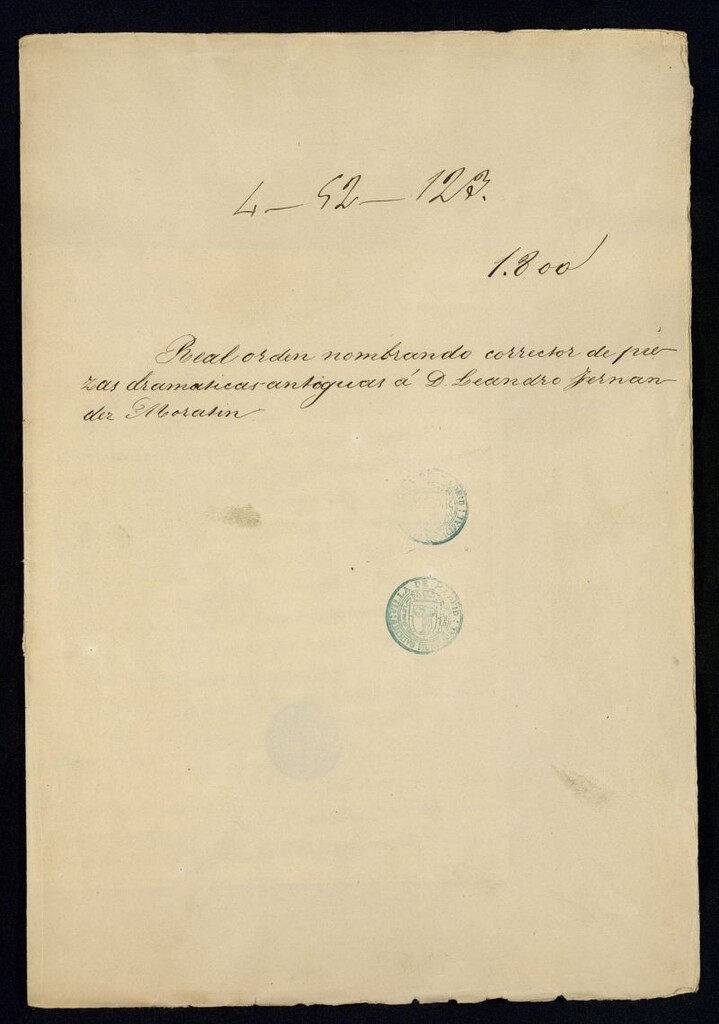 4 – 52 – 123.
1.800
Real orden nombrando corrector de pie-
zas dramaticas antiguas á D Leandro Fernan-
dez Moratin
VILLA DE MADRID